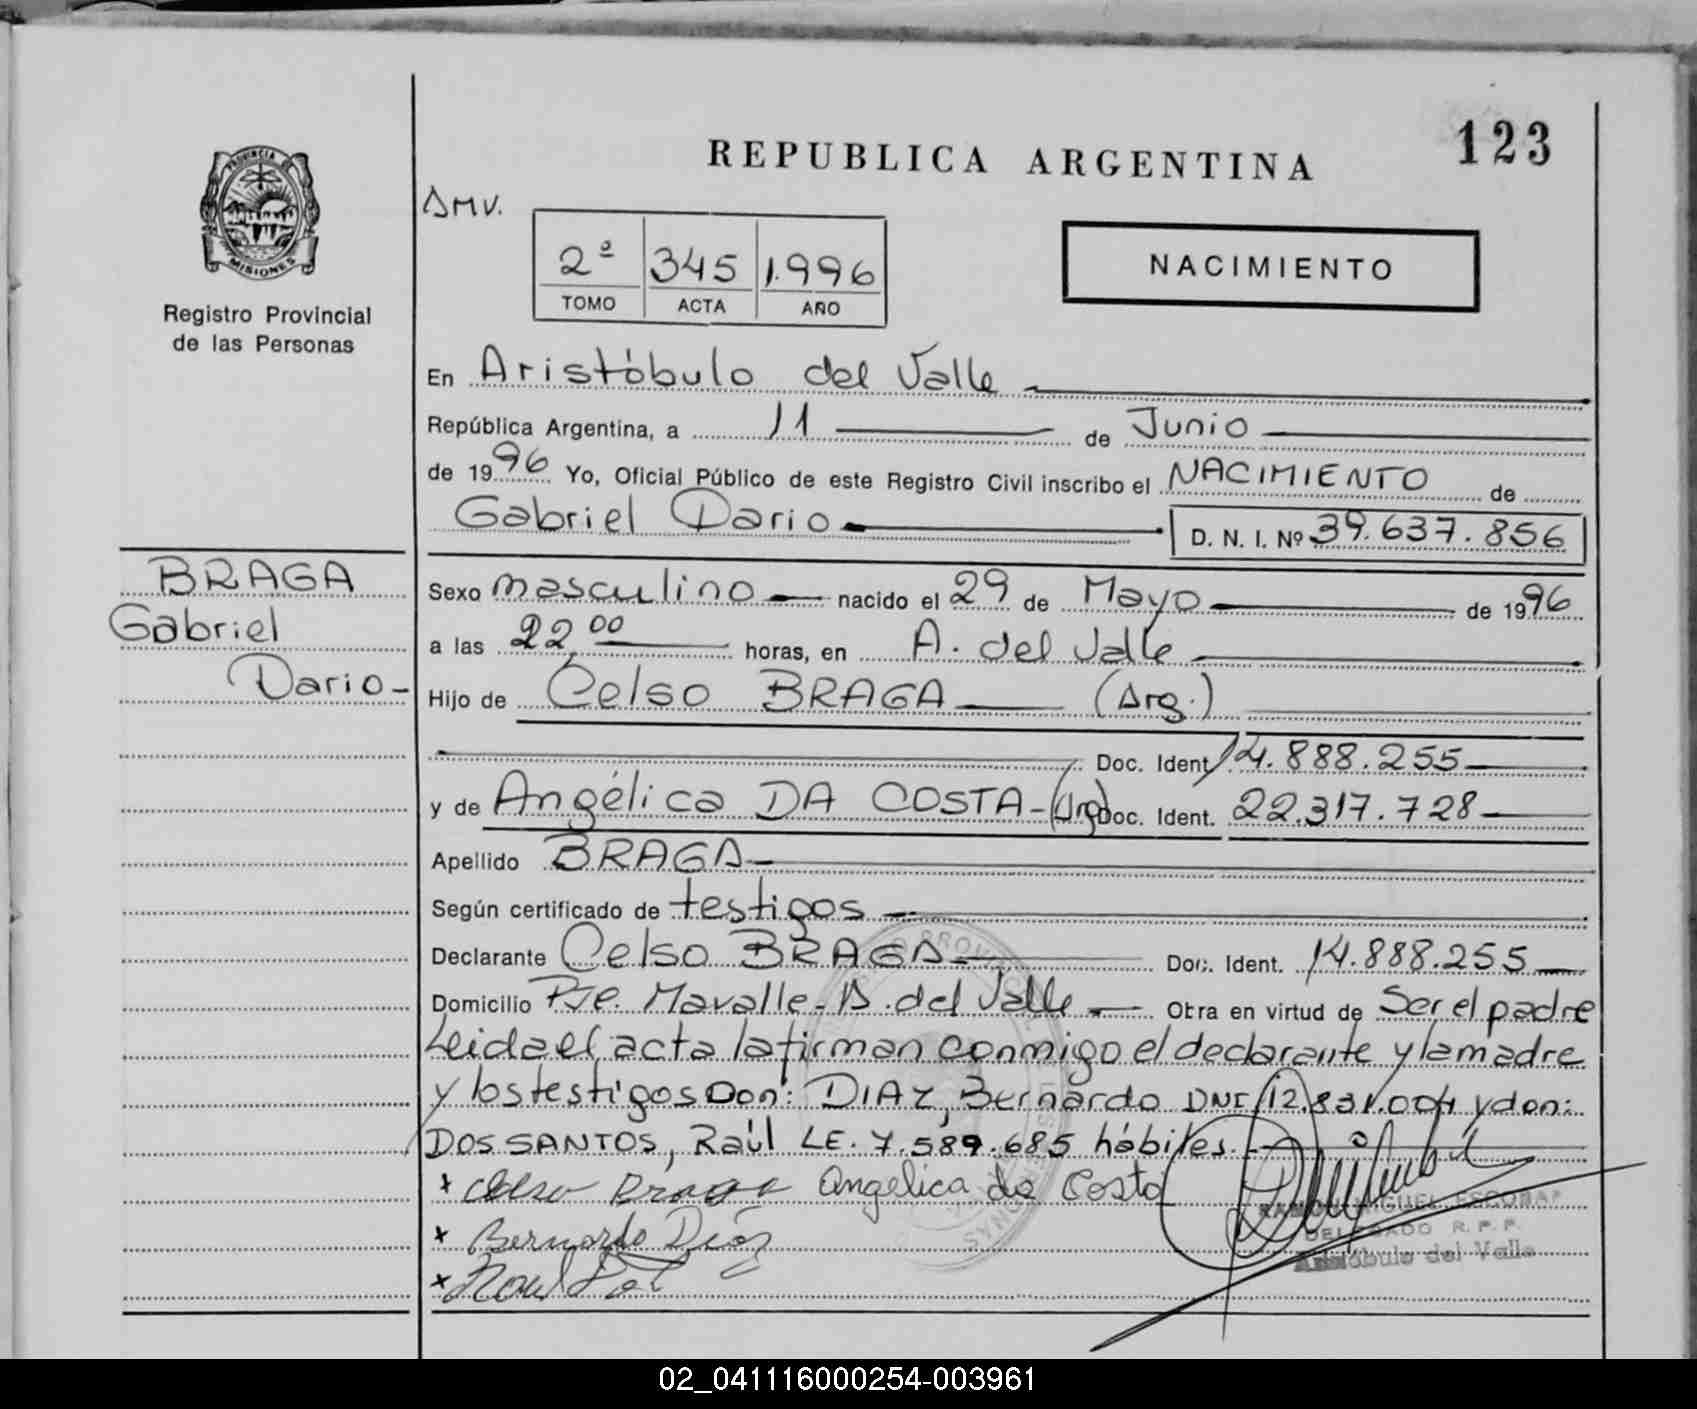 123
REPUBLICA ARGENTINA
PROVINCIA
MISIONES
Registro Provincial
de las Personas
2ª 345 1.996
TOMO ACTA AÑO
NACIMIENTO
En Aristóbulo del Valle
República Argentina, a 11 de Junio
de 1996 Yo, Oficial Público de este Registro Civil inscribo el NACIMIENTO de
Gabriel Dario D. N. I. Nº 39.637.856
BRAGA
Gabriel
Dario-
Sexo masculino nacido el 29 de Mayo de 1996
a las 22,00 horas, en A. del Valle
Hijo de Celso BRAGA (Arg.)
Doc. Ident. 14.888.255
y de Angélica DA COSTA-(Arg) Doc. Ident. 22.317.728
Apellido BRAGA
Según certificado de testigos
Declarante Celso BRAGA Doc. Ident. 14.888.255
Domicilio Pje. Mavalle-A.del Valle Obra en virtud de Ser el padre
Leida el acta la firman conmigo el declarante y la madre
y los testigos Don: DIAZ, Bernardo DNI 12.831.004 y don:
DOS SANTOS, Raúl LE. 7.589.685 hábiles.-
x Celso Braga Angelica da Costa
x Bernardo Diaz
x Raul
RAMON MIGUEL ESCOBAR
DELEGADO R. P. P.
Aristóbulo del Valle
02_041116000254-003961